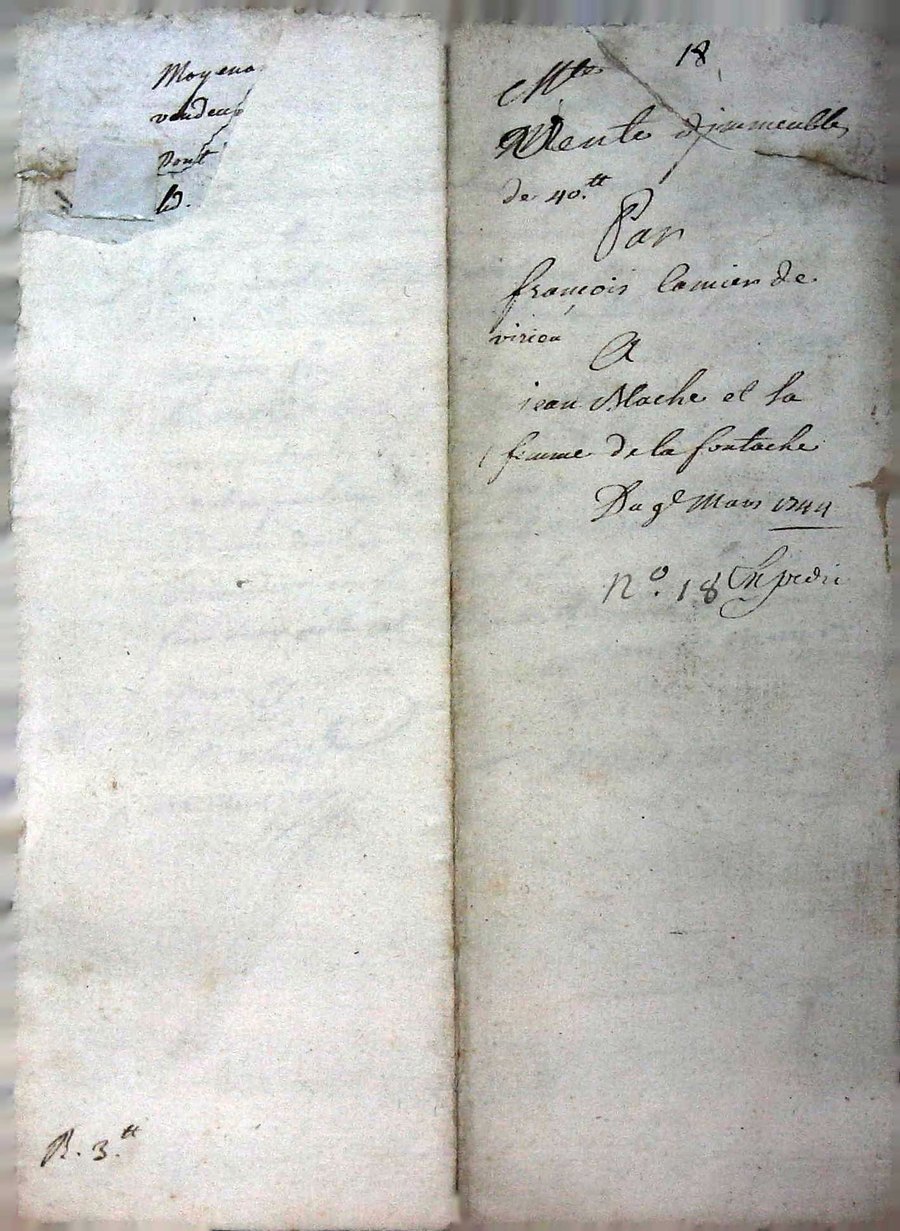 Moyena
vendeu
Dont
18
Vente d'immeubles
de 40.tt
Par
françois Camier de
virieu
A
jean Mache et sa
femme de la fontache
Du 9e Mars 1744
No. 18 Expedié
R. 3.tt